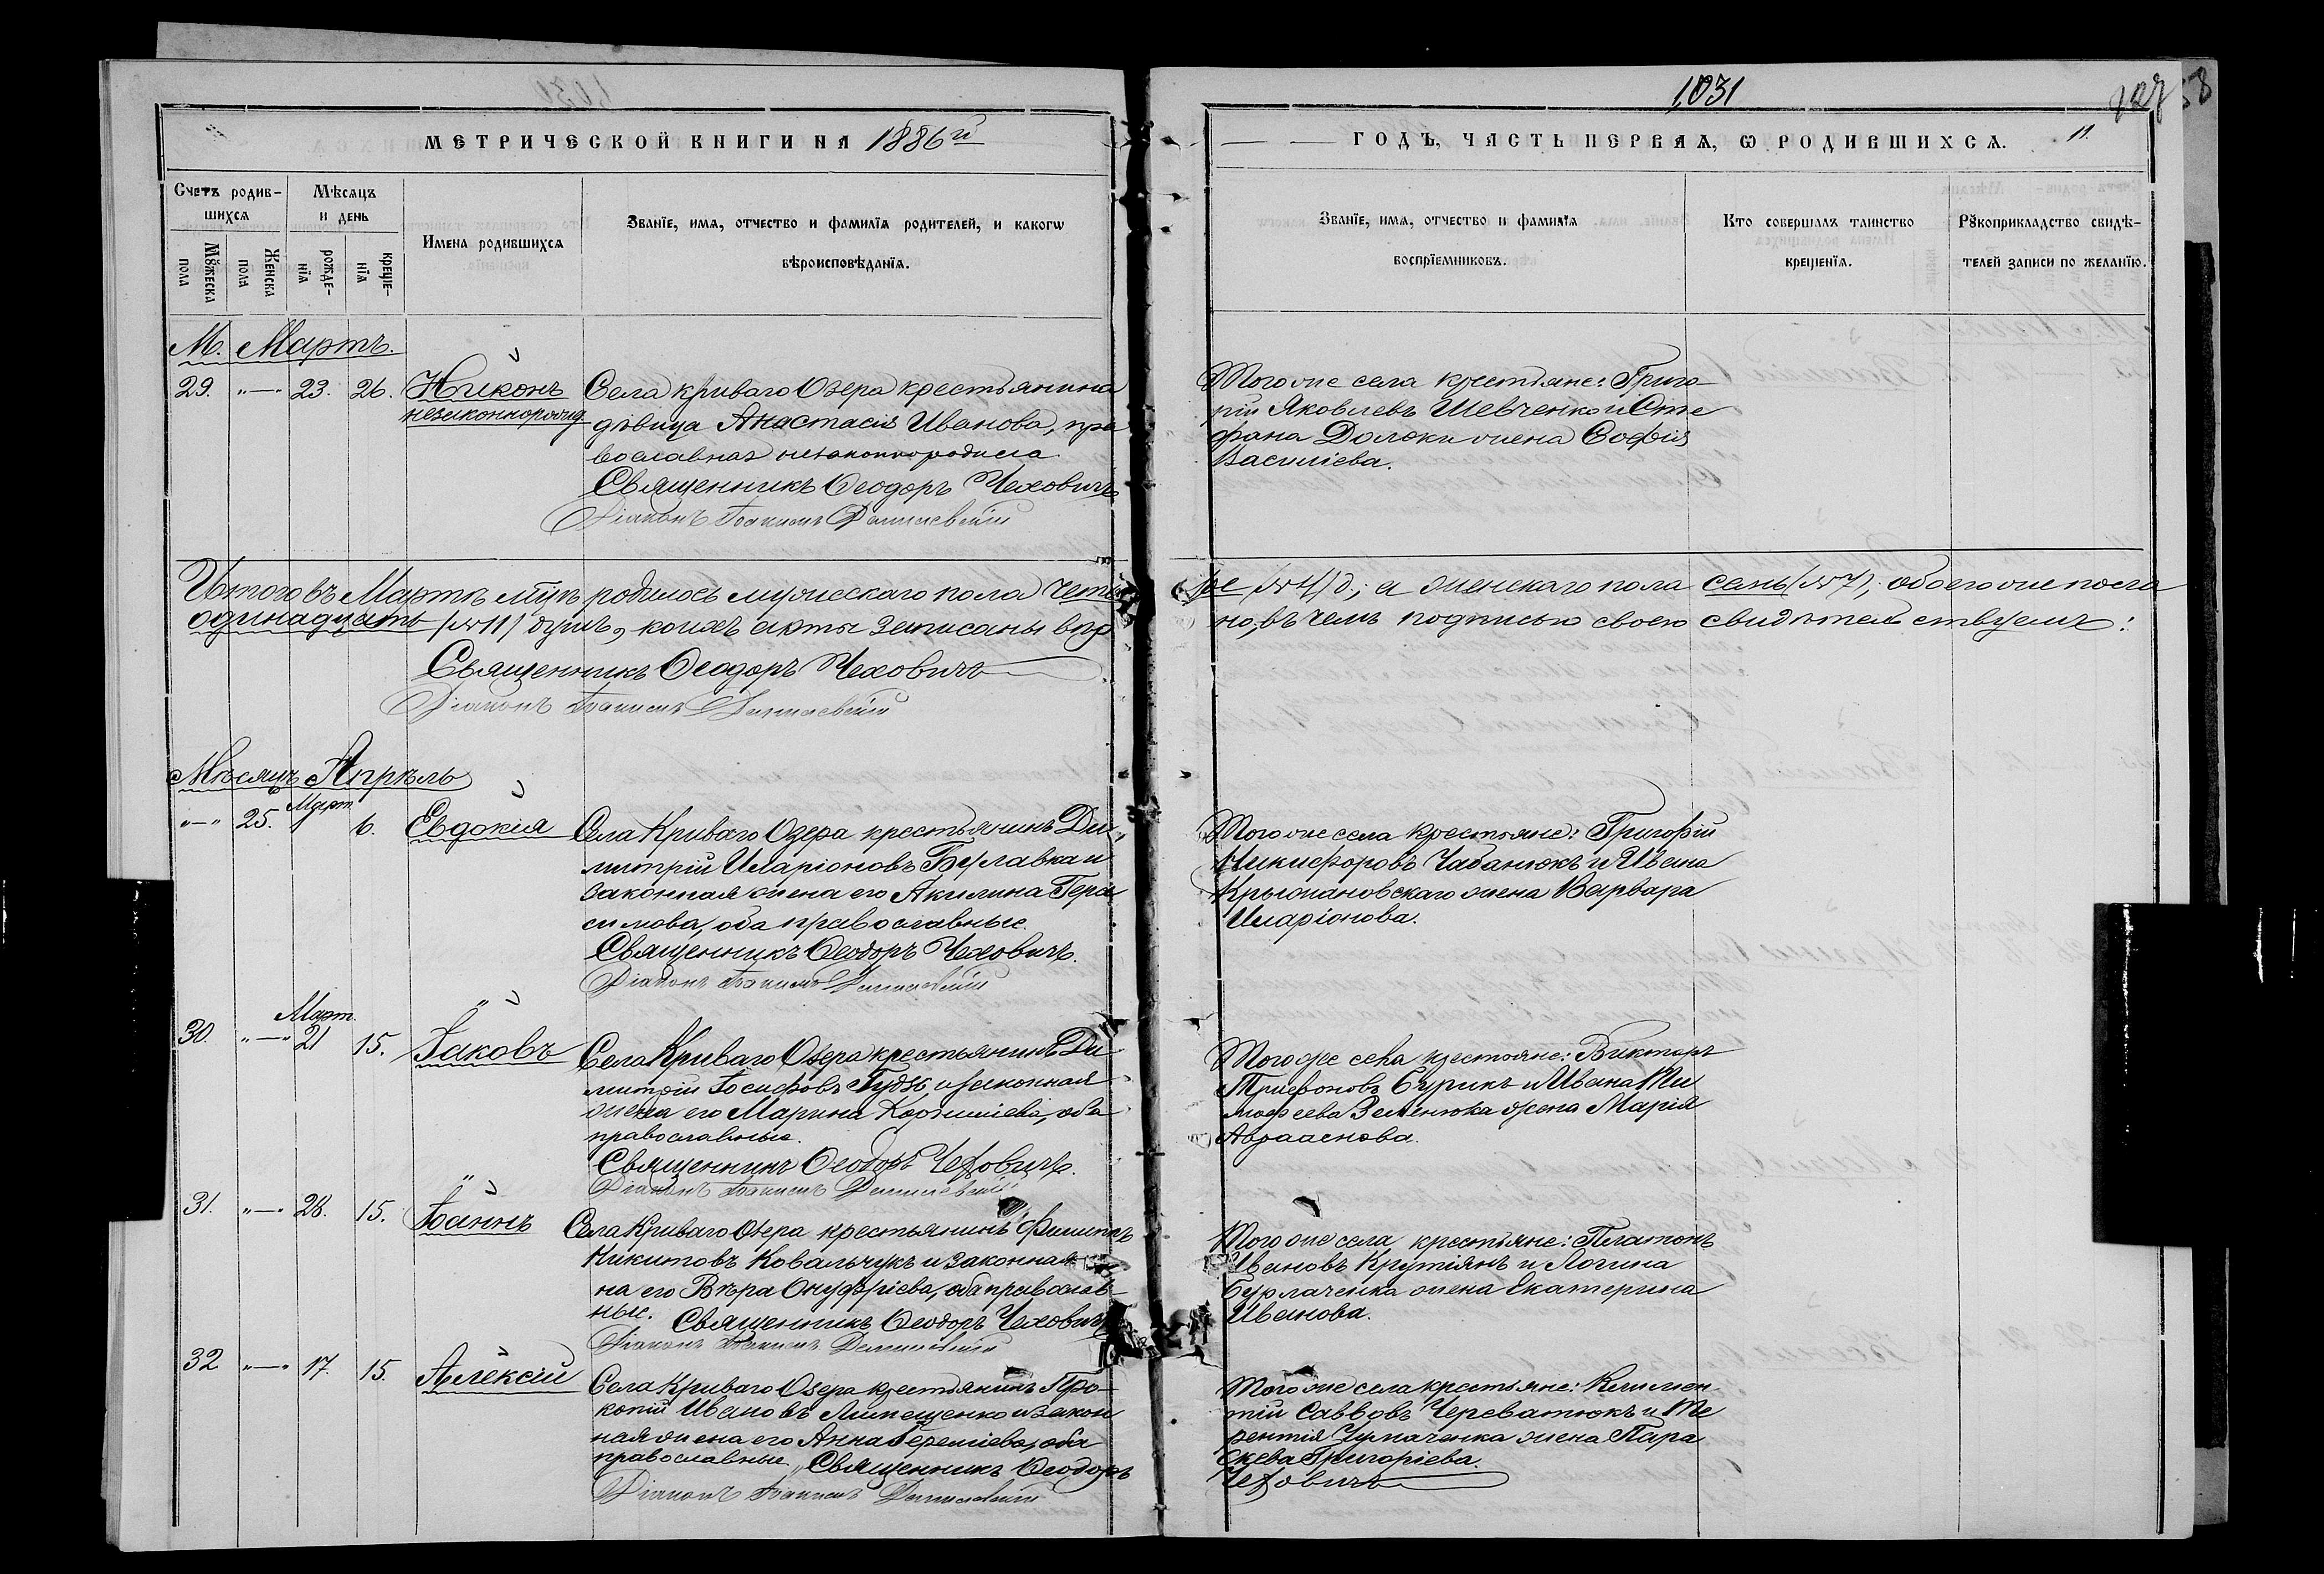 1031
127 58
МЕТРИЧЕСКОЙ КНИГИ НА 1886й
ГОДЪ, ЧАСТЬ ПЕРВАЯ, Ѡ РОДИВШИХСЯ. 11.
Счетъ родив-
шихся
Мѣсяцъ
и день
Мꙋжеска
пола
Женска
пола
рожде-
нїя
креще-
нїя
Имена родившихся
Званїе, имя, отчество и фамилїя родителей, и какогѡ
вѣроисповѣданїя.
Званїе, имя, отчество и фамилїя
воспрїемниковъ.
Кто совершалъ таинство
крещенїя.
Рꙋкоприкладство свидѣ-
телей записи по желанїю.
М. Мартъ.
29. "—" 23. 26. Никонъ
незаконнорожд
Села криваго Озера крестьянина
дѣвица Анастасія Иванова, пра
вославная незаконнородила
Священникъ Ѳеодоръ Чеховичъ
Діаконъ Іоакимъ
Того же села крестьяне: Григо-
рій Яковлевъ Шевченко и Сте
фана жена Софія
Василіева.
Итого въ Мартѣ м-цѣ родилось мужескаго пола четы
ре (№ 4) д.; а женскаго пола семь (№ 7); обоего же пола
одинадцать (№ 11) душъ, коихъ акты записаны вѣр
но, въ чемъ подписью своею свидѣтельствуемъ:
Священникъ Ѳеодоръ Чеховичъ
Діаконъ Іоакимъ
Мѣсяцъ Апрѣль
"—" 25. Март. 6. Евдокія
Села Криваго Озера крестьянинъ Ди-
митрій Иларіоновъ Бурлавка и
законная жена его Акилина Гера
симова, оба православные.
Священникъ Ѳеодоръ Чеховичъ.
Діаконъ Іоакимъ
Того же села крестьяне: Григорій
Никифоровъ Чабанюкъ и Ивана
Крыжановскаго жена Варвара
Иларіонова.
Март.
30. "—" 21 15. Іаковъ
Села Криваго Озера крестьянинъ Ди
митрій Іосифовъ Гудзь и законная
жена его Марина Корниліева, оба
православные.
Священникъ Ѳеодоръ Чеховичъ.
Діаконъ Іоакимъ
Того же села крестьяне: Викторъ
Трифоновъ Бурикъ и Ивана Ти
мофеева Зеленюка жена Марія
Авраамова.
31. "—" 28. 15. Іоаннъ
Села Криваго Озера крестьянинъ Филиппъ
Никитовъ Ковальчукъ и законная
на его Вѣра Онуфріева, оба православ-
ные. Священникъ Ѳеодоръ Чеховичъ
Діаконъ Іоакимъ
Того же села крестьяне: Платонъ
Ивановъ Крутіянъ и Логина
Бурлаченка жена Екатерина
Иванова.
32 "—" 17. 15. Алексій
Села Криваго Озера крестьянинъ Про-
копій Ивановъ Лимещенко и закон
ная жена его Анна Іереміева, оба
православные. Священникъ Ѳеодоръ
Діаконъ Іоакимъ
Того же села крестьяне: Климен
тій Саввовъ Череватюкъ и Те
рентія Чумаченка жена Пара
скева Григоріева.
Чеховичъ